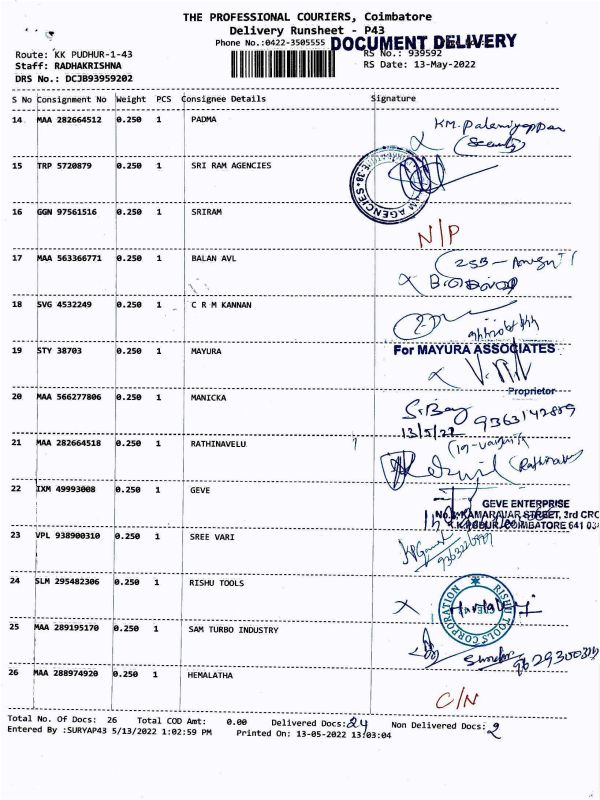 THE PROFESSIONAL COURIERS, Coimbatore
Delivery Runsheet - P43
Phone No.:0422-3505555 DOCUMENT DELIVERY
Route: KK PUDHUR-1-43 RS No.: 939592
Staff: RADHAKRISHNA RS Date: 13-May-2022
DRS No.: DCJB93959202
S No Consignment No Weight PCS Consignee Details Signature
14 MAA 282664512 0.250 1 PADMA KM. Palaniyappan
(Security)
15 TRP 5720879 0.250 1 SRI RAM AGENCIES
16 GGN 97561516 0.250 1 SRIRAM N/P
17 MAA 563366771 0.250 1 BALAN AVL
18 SVG 4532249 0.250 1 C R M KANNAN
19 STY 38703 0.250 1 MAYURA For MAYURA ASSOCIATES
Proprietor
20 MAA 566277806 0.250 1 MANICKA
13/5/22
21 MAA 282664518 0.250 1 RATHINAVELU
22 IXM 49993008 0.250 1 GEVE GEVE ENTERPRISE
KAMARAJAR STREET, 3rd CRO
COIMBATORE 641 03
23 VPL 938900310 0.250 1 SREE VARI
24 SLM 295482306 0.250 1 RISHU TOOLS RISHU TOOLS CORPORATION
25 MAA 289195170 0.250 1 SAM TURBO INDUSTRY
26 MAA 288974920 0.250 1 HEMALATHA C/N
Total No. Of Docs: 26 Total COD Amt: 0.00 Delivered Docs: 24 Non Delivered Docs: 2
Entered By :SURYAP43 5/13/2022 1:02:59 PM Printed On: 13-05-2022 13:03:04